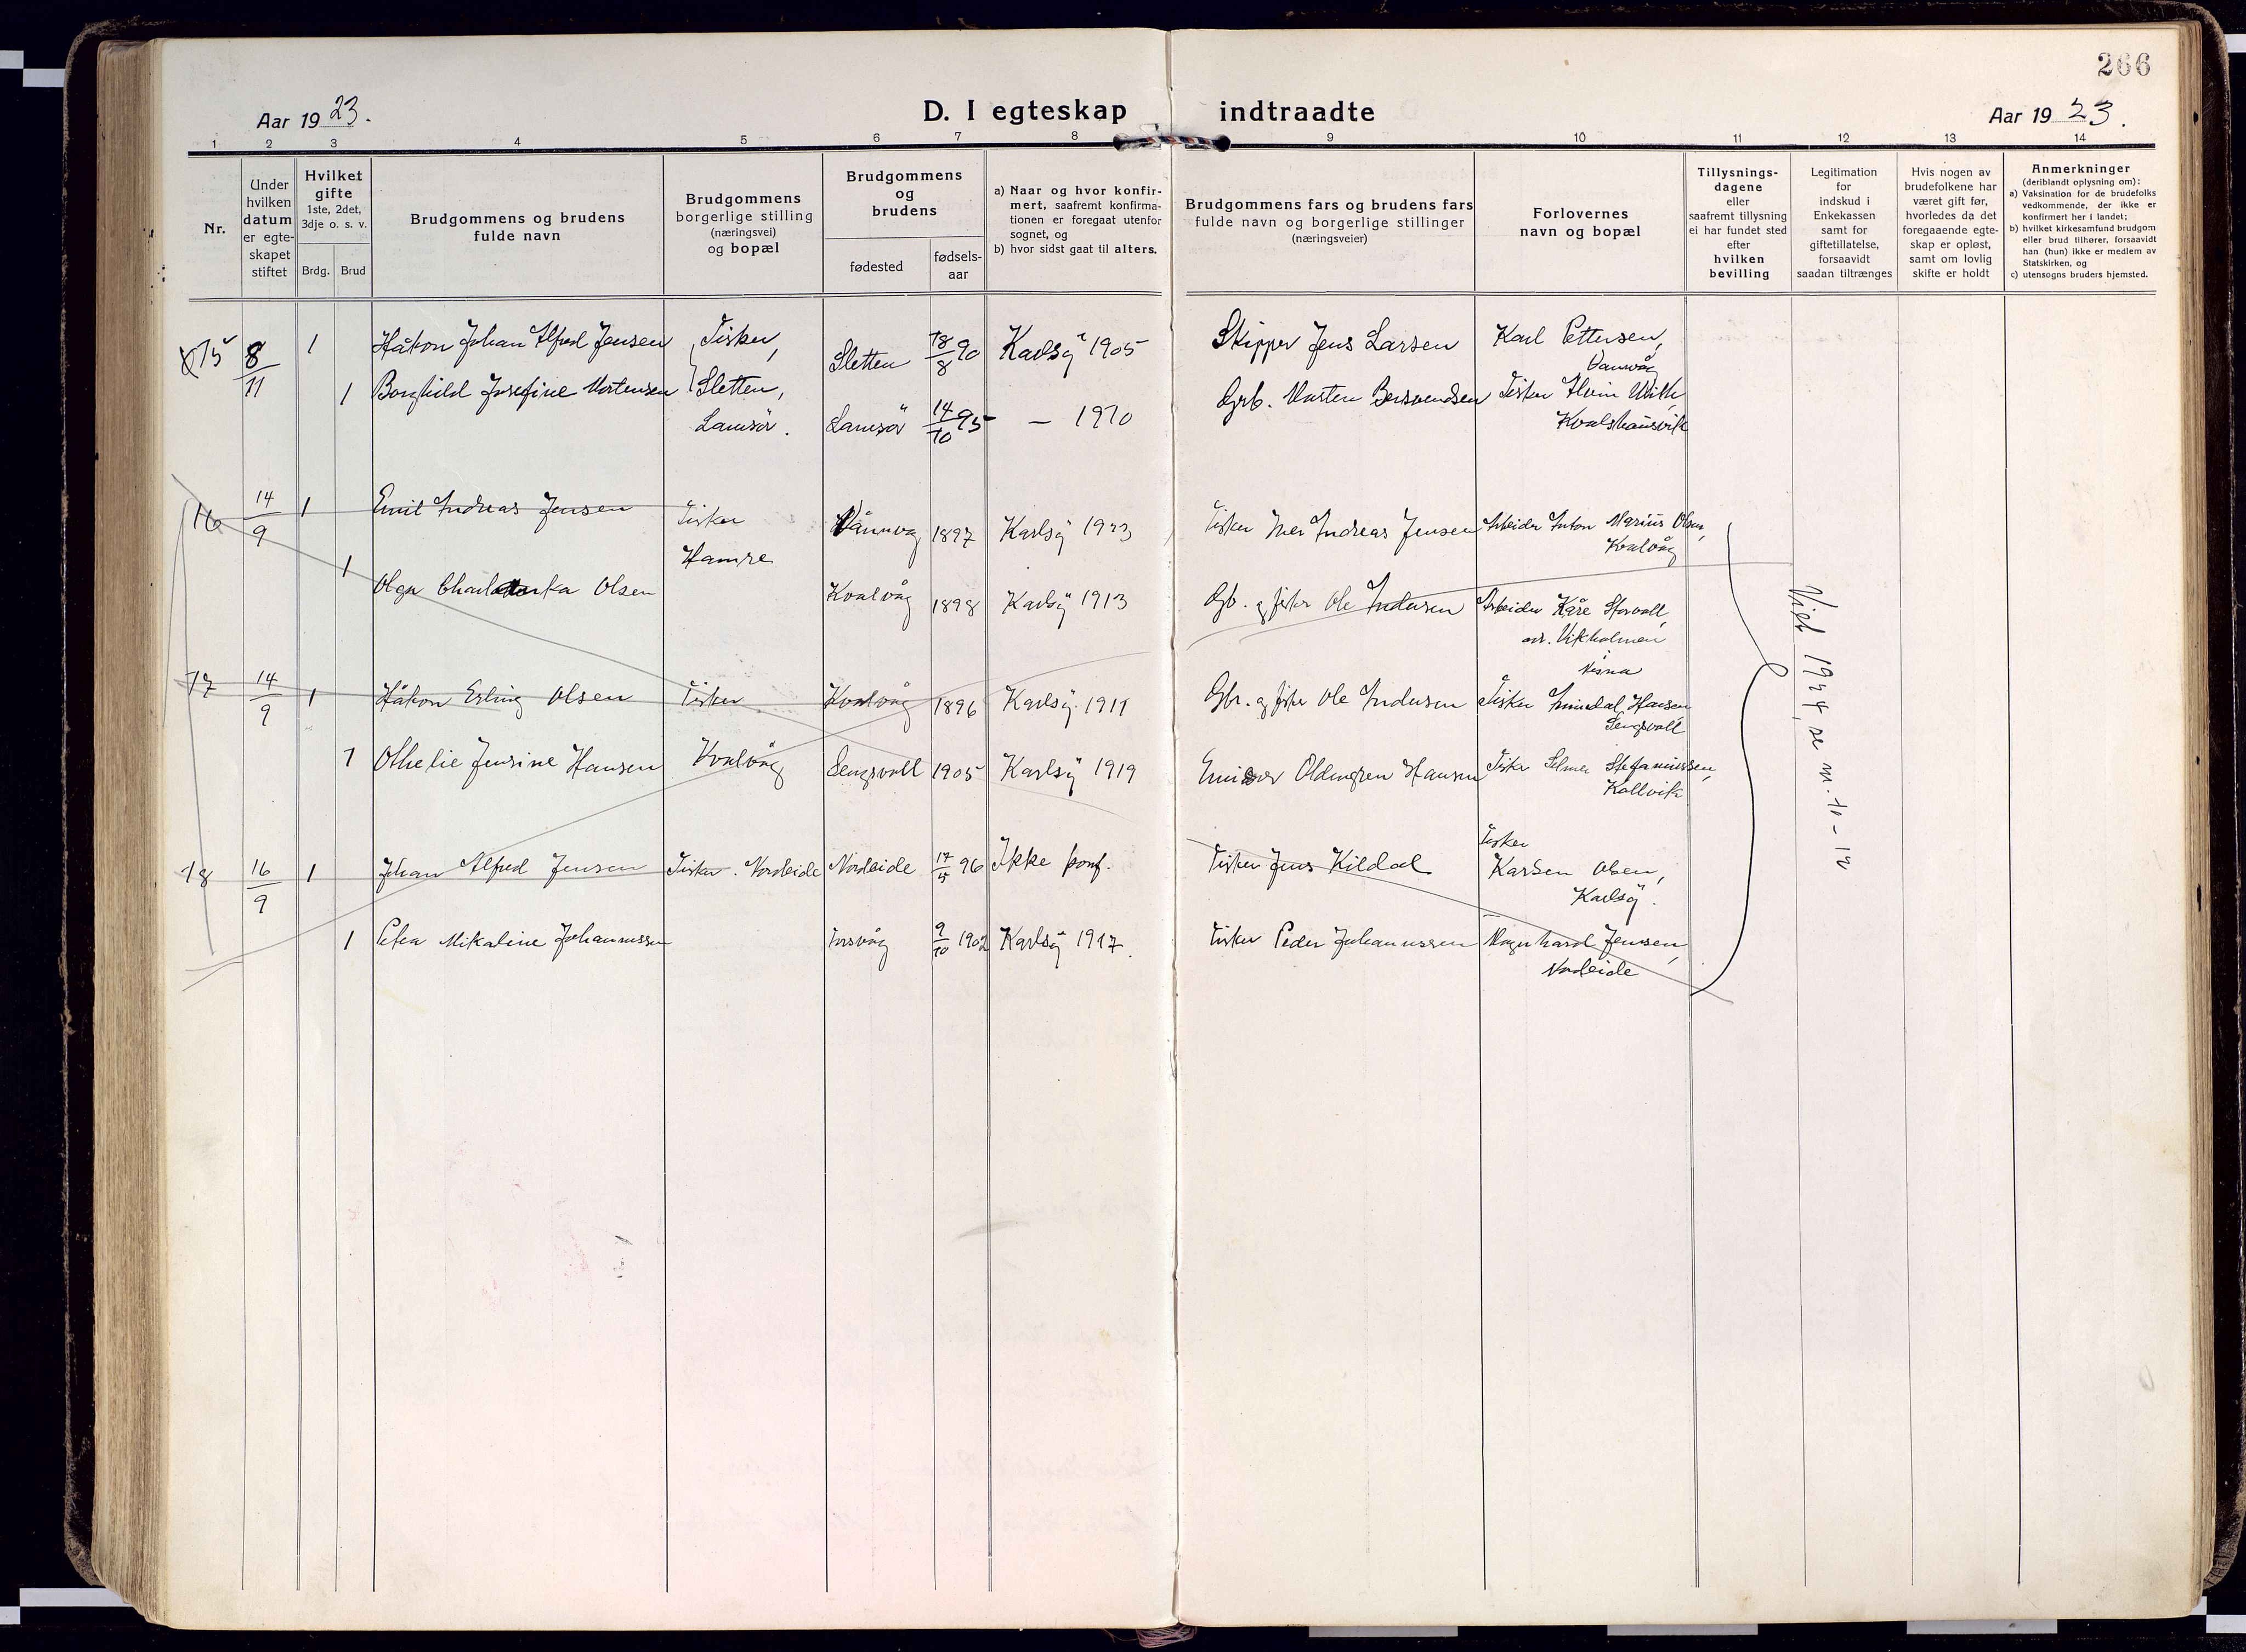 266
Aar 1923.
D. I egteskap indtraadte
Aar 1923.
1 2 3 4 5 6 7 8 9 10 11 12 13 14
Nr.
Under
hvilken
datum
er egte-
skapet
stiftet
Hvilket
gifte
1ste, 2det,
3dje o. s. v.
Brdg. Brud
Brudgommens og brudens
fulde navn
Brudgommens
borgerlige stilling
(næringsvei)
og bopæl
Brudgommens
og
brudens
fødested
fødsels-
aar
a) Naar og hvor konfir-
mert, saafremt konfirma-
tionen er foregaat utenfor
sognet, og
b) hvor sidst gaat til alters.
Brudgommens fars og brudens fars
fulde navn og borgerlige stillinger
(næringsveier)
Forlovernes
navn og bopæl
Tillysnings-
dagene
eller
saafremt tillysning
ei har fundet sted
efter
hvilken
bevilling
Legitimation
for
indskud i
Enkekassen
samt for
giftetillatelse,
forsaavidt
saadan tiltrænges
Hvis nogen av
brudefolkene har
været gift før,
hvorledes da det
foregaaende egte-
skap er opløst,
samt om lovlig
skifte er holdt
Anmerkninger
(deriblandt oplysning om):
a) Vaksination for de brudefolks
vedkommende, der ikke er
konfirmert her i landet;
b) hvilket kirkesamfund brudgom
eller brud tilhører, forsaavidt
han (hun) ikke er medlem av
Statskirken, og
c) utensogns bruders hjemsted.
15 8/11 1 Håkon Johan Alfred Jensen Fisker, Sletten 18/8 90 Karlsö 1905 Skipper Jens Larsen Karl Pettersen,
Vannvåg
1 Borghild Josefine Mortensen Sletten, Grb. Morten Bersvendsen Fisker
Kvalshausvik
Lanesör. Lanesör 14/10 95 — 1910
16 14/9 1 Emil Andreas Jensen Fisker Vannvag 1897 Karlsö 1923 Fisker Andreas Jensen Arbeider Anton Marius Olsen,
Kvalvåg
Hamre
1 Olga Olsen Kvalvåg 1898 Karlsö 1913 Gb. og fisker Ole Andersen Arbeider Kåre Storvoll,
adr. Vikholmen
Nesna
17 14/9 1 Håkon Erling Olsen Fisker Kvalvåg 1896 Karlsö 1911 Gbr. og fisker Ole Andersen Fisker Hansen
Lengsvoll
1 Othelie Jensine Hansen Kvalvåg Lengsvoll 1905 Karlsö 1919 Oldingren Hansen Fisker Selmer Stefanussen,
Kallvik
18 16/9 1 Johan Alfred Jensen Fisker. Nordeide Nordeide 17/5 96 Ikke konf. Fisker Jens Kildal Fisker
Karsen Olsen,
Karlsö.
1 Petra Mikaline Johannessen Torsvåg 9/10 1902 Karlsö 1917. Fisker Peder Johannessen Magnhard Jensen,
Nordeide
Viet 1924, se nr. 10-12